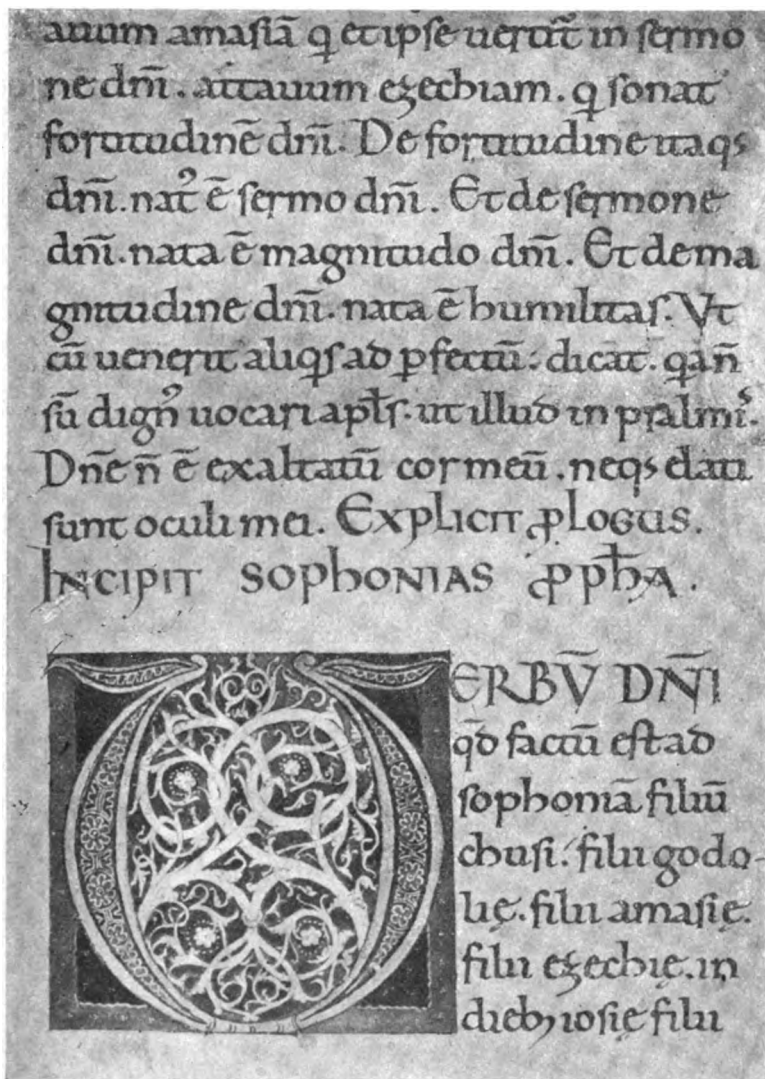 auum amasiā q̄ et ipse uertit̄ in sermo
nē dn̄i. attauum ezechiam. q̄ sonat
fortitudinē dn̄i. De fortitudine itaqs
dn̄i. nat᷒ ē sermo dn̄i. Et de sermone
dn̄i. nata ē magnitudo dn̄i. Et de ma
gnitudine dn̄i. nata ē humilitas. Vt
cū uenerit aliqs ad ꝑfectū: dicat. qa n̄
sū dign᷒ uocari apl̄s. ut illud in psalmis.
Dn̄e n̄ ē exaltatū cor meū. neqs elati
sunt oculi mei. EXPLICIT ꝓLOGUS.
INCIPIT SOPHONIAS ꝓPH̄A.
VERBV̄ DN̄I
qd̄ factū est ad
sophoniā filiū
chusi. filii godo-
lię. filii amasię.
filii ezechię. in
dieb; iosię filii